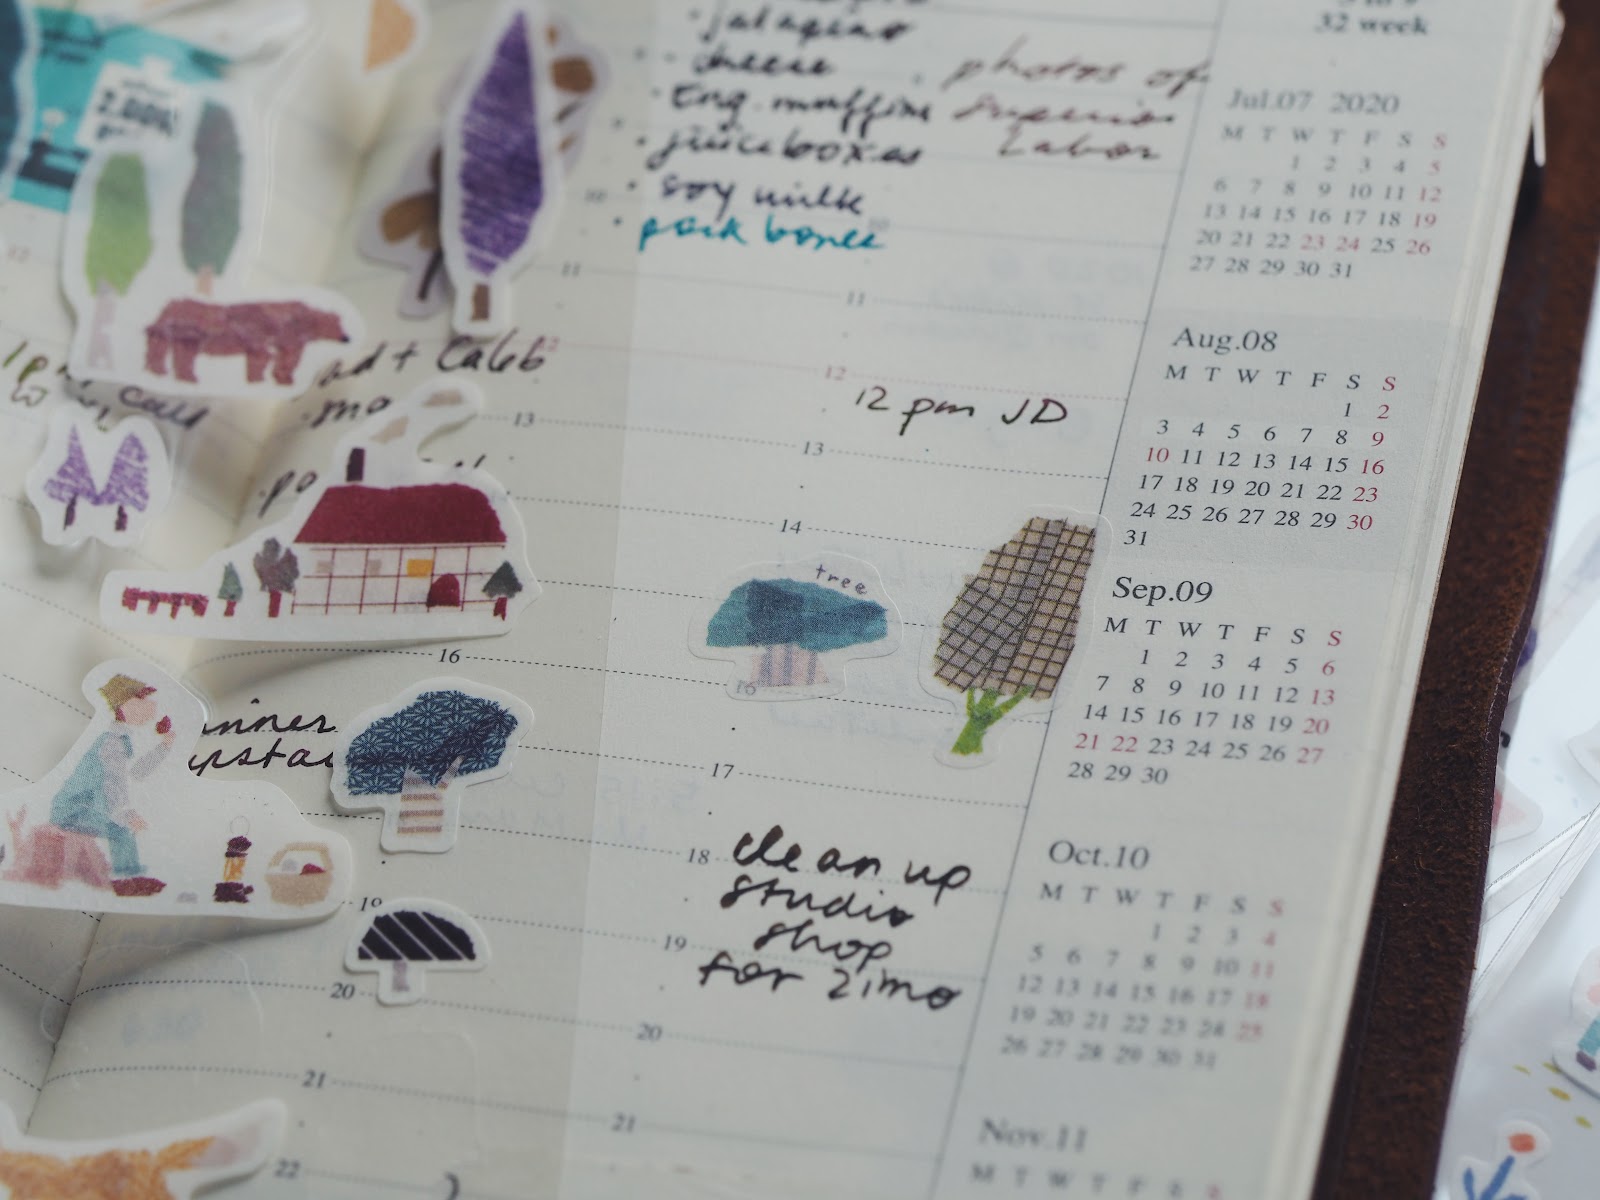 32 week
jalapeno
cheese
Eng. muffins
juiceboxes
soy milk
pork bones
photos of
Superior
Labor
2.00%
10
11
12
ad + Caleb
mo
call
13
po
16
inner
upstai
19
20
21
22
11
12
12 pm JD
13
14
tree
16
17
18
clean up
studio
shop
for 2 imo
19
20
21
Jul.07 2020
M T W T F S S
1 2 3 4 5
6 7 8 9 10 11 12
13 14 15 16 17 18 19
20 21 22 23 24 25 26
27 28 29 30 31
Aug.08
M T W T F S S
1 2
3 4 5 6 7 8 9
10 11 12 13 14 15 16
17 18 19 20 21 22 23
24 25 26 27 28 29 30
31
Sep.09
M T W T F S S
1 2 3 4 5 6
7 8 9 10 11 12 13
14 15 16 17 18 19 20
21 22 23 24 25 26 27
28 29 30
Oct.10
M T W T F S S
1 2 3 4
5 6 7 8 9 10 11
12 13 14 15 16 17 18
19 20 21 22 23 24 25
26 27 28 29 30 31
Nov.11
M T W T F S S